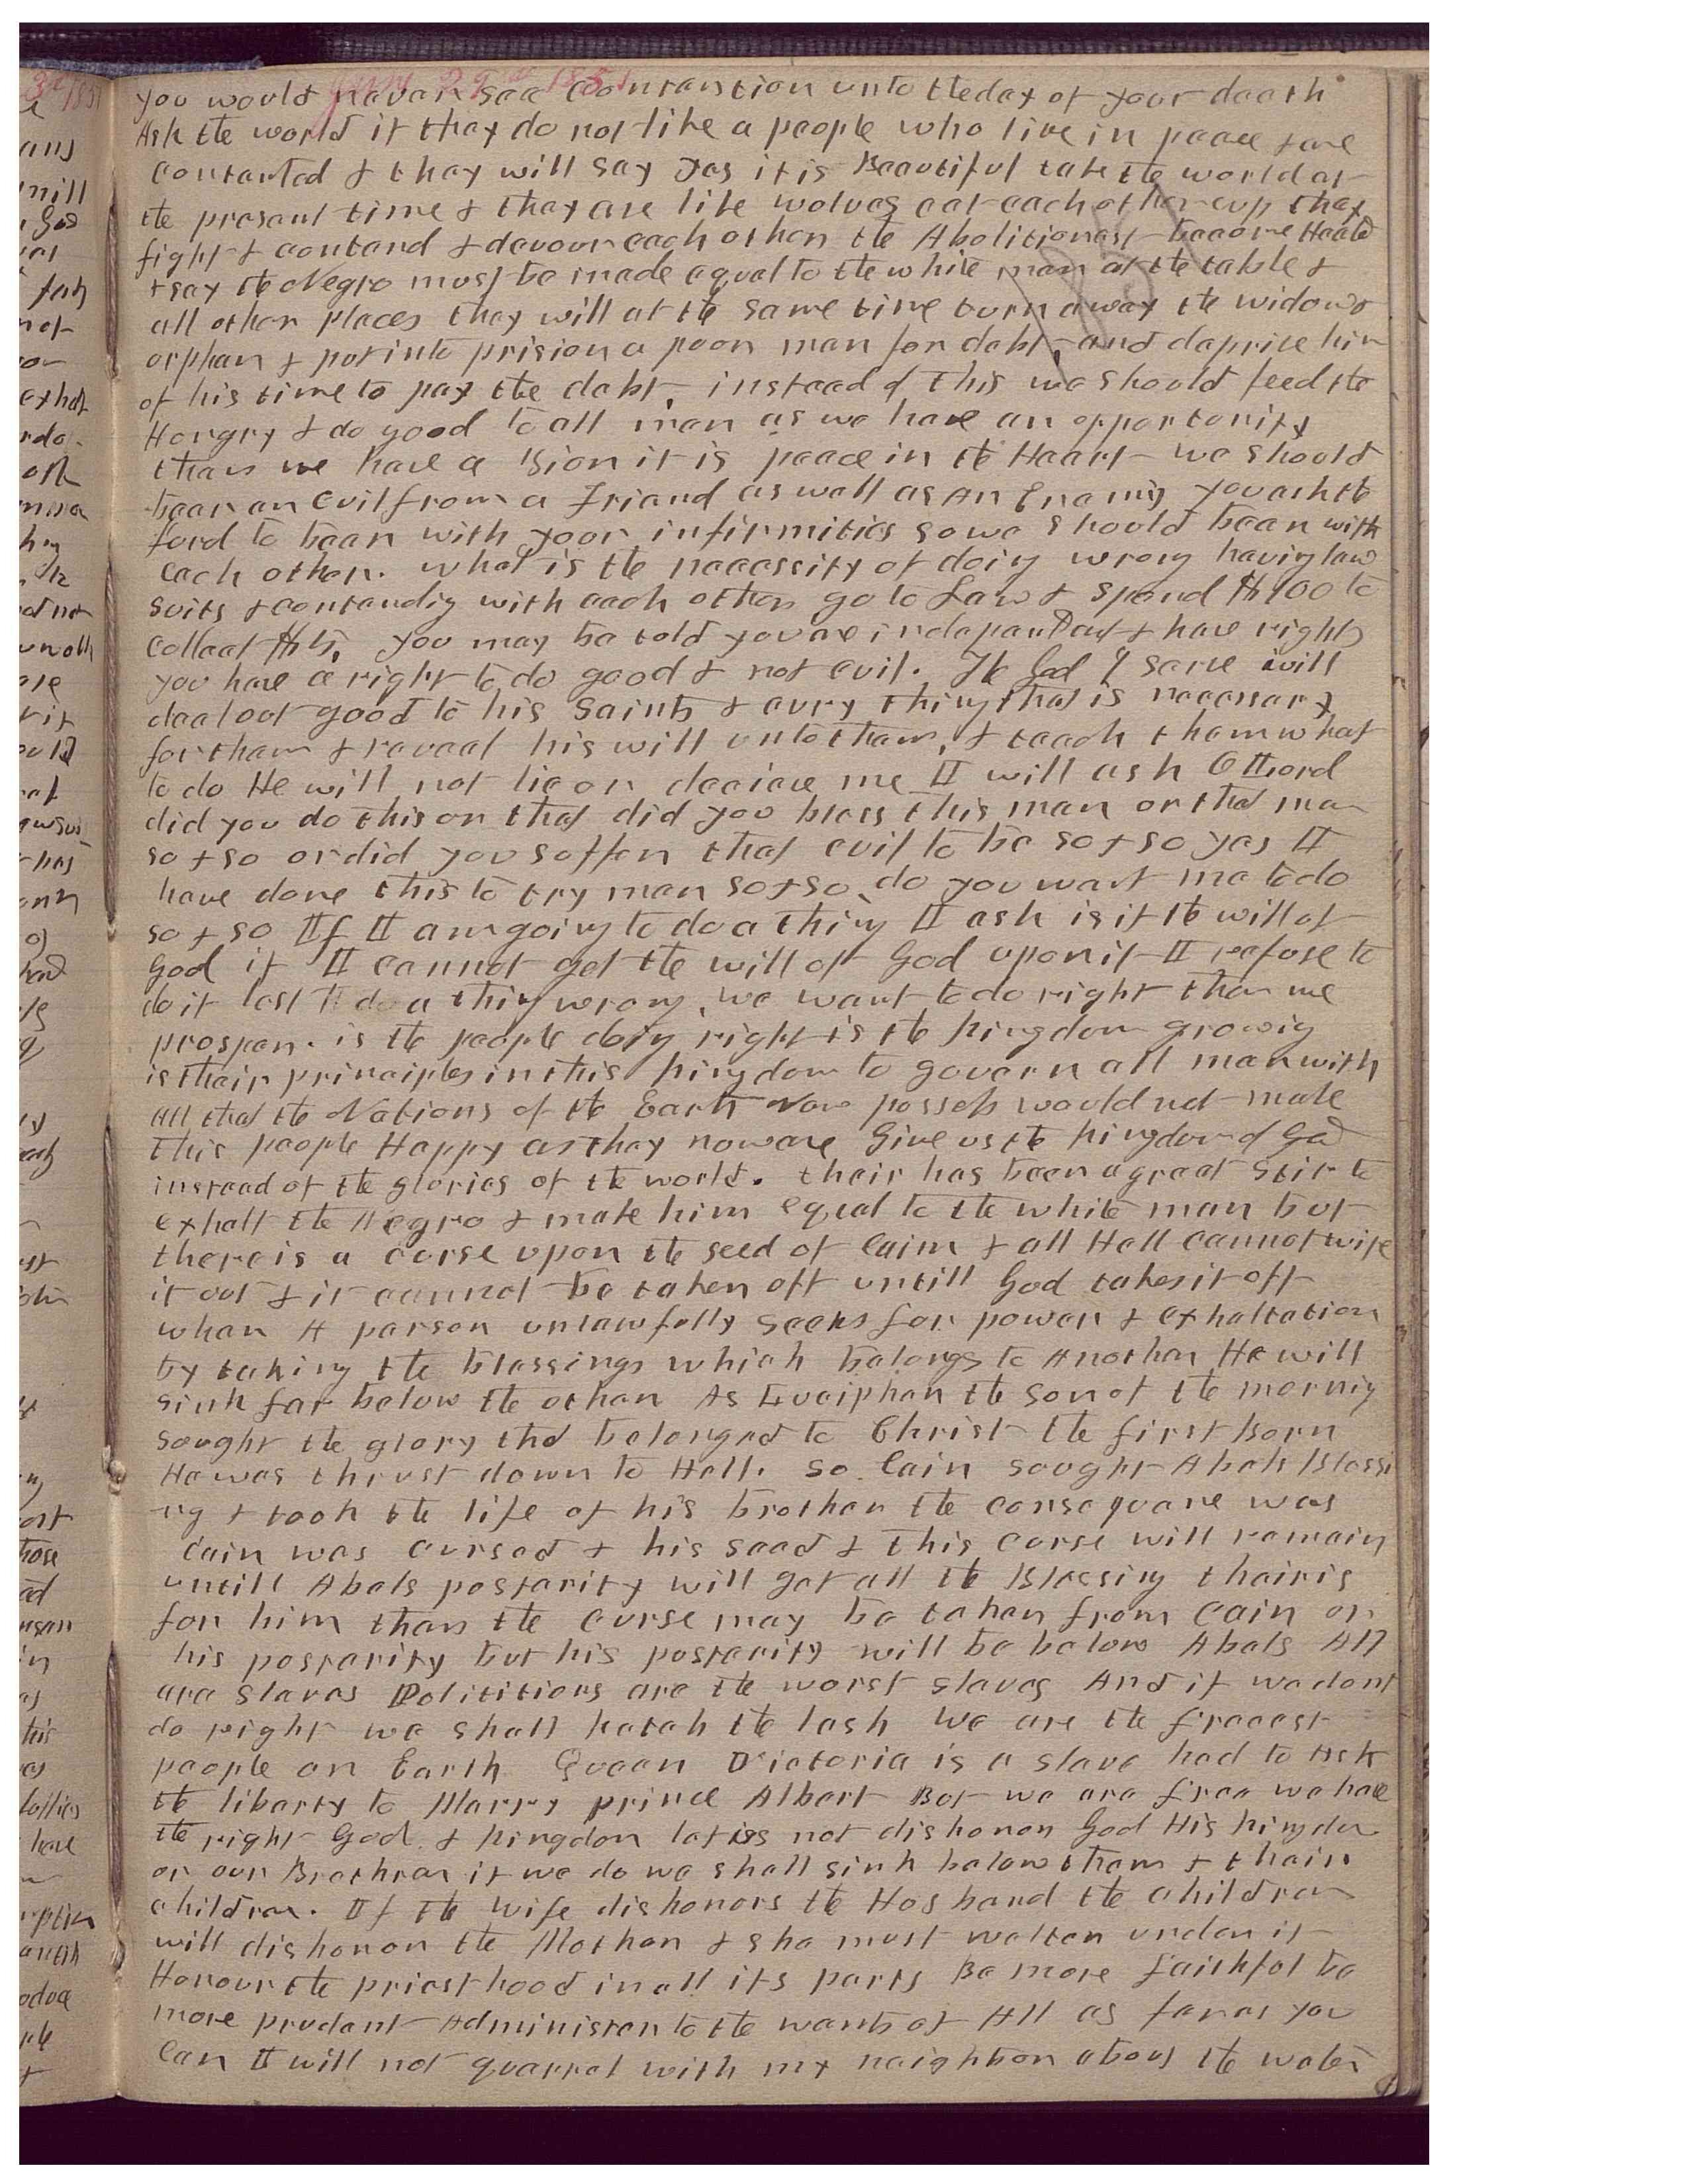 June 29th 1851
you would never see Contenstion unto the day of your death
Ask the world if they do not like a people who live in peace & are
contented & they will say yes it is Beautiful take the world at
the present time & they are like wolves eat each other up they
fight & contend & devour each other the Abolitionest become Heated
& say the Negro must be made equal to the white man at the table &
all other places they will at the same time turn away the widow &
orphan & put into prision a poor man for debt, and deprive him
of his time to pay the debt, instead of this we should feed the
Hungry & do good to all men as we have an opportunity
then we have a Zion it is peace in the Heart we should
bear an evil from a Friend as well as An Enemy you ask the
ford to bear with your infirmities so we should bear with
each other. what is the necessity of doing wrong having law
suits & contendig with each other go to Law & spend $100 to
collect $5, you may be told you are independant & have rights
you have a right to do good & not evil. The God I serve will
deal out good to his Saints & evry thing that is necessary
for them & reveal his will unto them, & teach them what
to do He will not lie or deceive me I will ask O Lord
did you do this or that did you bless this man or that man
so & so or did you suffer that evil to be so & so yes I
have done this to try man so & so, do you want me to do
so & so If I am going to do a thing I ask is it the will of
God if I cannot get the will of God upon it I refuse to
do it lest I do a thing wrong, we want to do right then we
prosper. is the people doing right is the kingdom growig
is their principles in this kingdom to govern all men with
All that the Nations of the Earth Now possess would not make
this people Happy as they now are Give us the kingdom of God
instead of the glories of the world. their has been a great Stir to
exhalt the Negro & make him equal to the white man but
there is a curse upon the seed of Cain & all Hell cannot wipe
it out & it cannot be taken off untill God takes it off
when A person unlawfully seeks for power & exhaltation
by taking the blessings which belongs to Another He will
sink far below the other As Lucipher the son of the mornig
sought the glory that belonged to Christ the first Born
He was thrust down to Hell. so Cain sought Abels Blessi
-ng & took the life of his brother the consequane was
Cain was cursed & his seed & this curse will remain
untill Abels posterity will get all the Blessing their is
for him then the curse may be taken from Cain or
his posterity but his posterity will be below Abels All
are slaves Polititions are the worst slaves And if we dont
do right we shall ketch the lash We are the freeest
people on Earth Queen Victoria is a slave had to Ask
the liberty to Marry prince Albert But we are free we have
the right God & kingdom let us not dishonor God His kingdom
or our Brethren if we do we shall sink below them & their
children. If the wife dishonors the Husband the children
will dishonor the Mother & she must welter under it
Honour the priesthood in all its parts Be more faithful be
more prudent Administer to the wants of All as far as you
Can I will not quarrel with my neighbor about the water